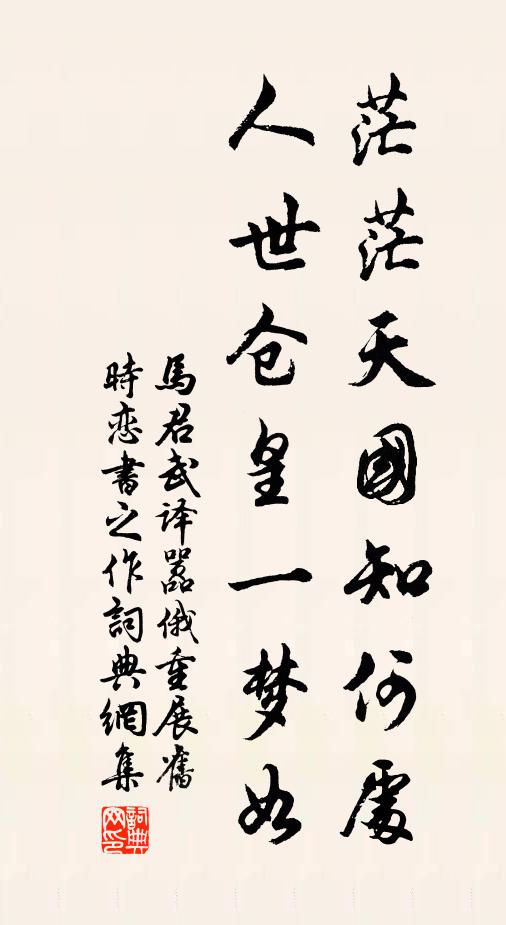 茫茫天國知何處
人世仓皇一梦如
馬君武译嚣俄重展舊
時恋書之作詞典網集
詞典网印